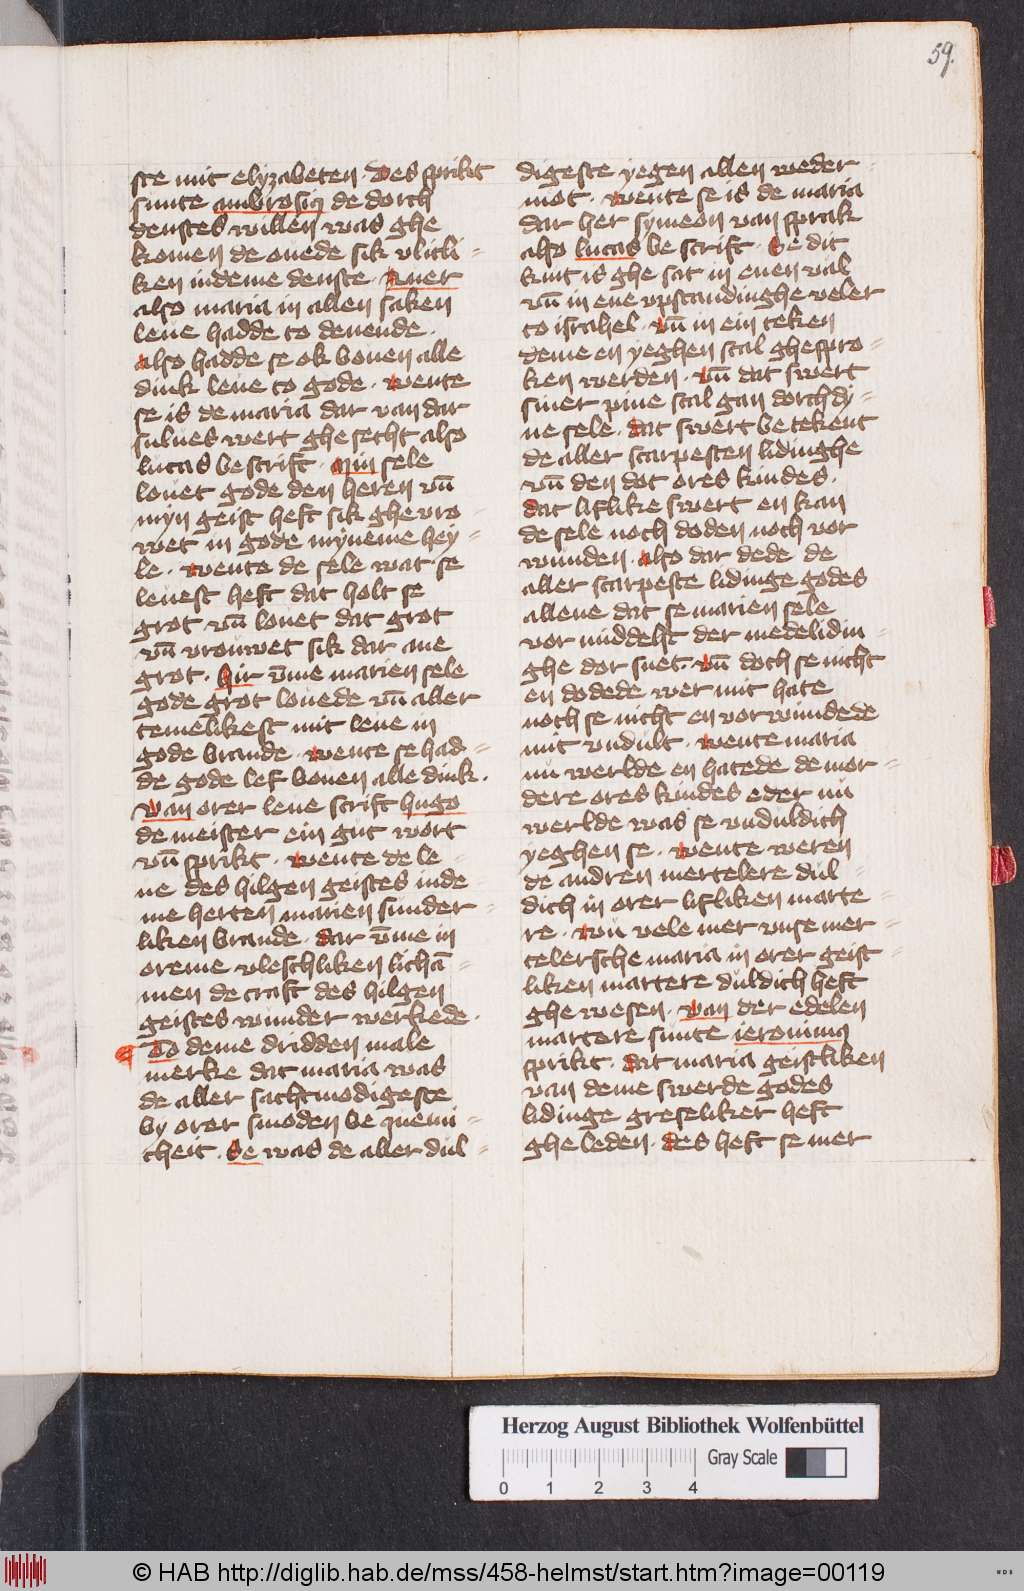 59.
ste mit elyzabeten · Des sprikt
sunte ambrosius de dorch
denstes willen was ghe
komen de ouede sik vlitli=
ken in deme denste · Auer
also maria in allen saken
leue hadde to deuende ·
also hadde se ok bouen alle
dink leue to gode · wente
se is de maria dar van dar
sulues wert ghe secht also
lucas bescrift · Min sele
louet gode den heren vn̄
myn geist heft sik ghe vro=
wet in gode myneme hey=
le · wente de sele wat se
leuest heft dat holt se
grot vn̄ louet dat grot
vn̄ vrouwet sik dar ane
grot · hir v̄me marien sele
gode grot louede vn̄ aller
temelikest mit leue in
gode brande · wente se had=
de gode lef bouen alle dink ·
van orer leue scrift hugo
de meister ein gut wort
vn̄ sprikt · wente de le=
ue des hilgen geistes in de=
me herten marien sunder=
liken brande · dar v̄me in
oreme vleschliken lichā=
men de craft des hilgen
geistes wunder werkede ·
To deme dridden male
merke dat maria was
de aller sachtmodigeste
by orer smoden be quemi=
cheit · Se was de aller dul=
digeste yegen allen weder=
mot · wente se is de maria
dar her symeon van sprak
also lucas be scrift · Se dit
kint is ghe sat in enen val
vn̄ in ene vpstandinghe veler
to israhel · vn̄ in ein teken
deme en yeghen scal ghespro=
ken werden · vn̄ dat swert
siner pine scal gan dorch dy=
ne sele · dat swert be tekent
de aller scarpesten lidinghe
vn̄ den dot ores kindes ·
dat liflike swert en kan
de sele noch doden noch vor
wunden · also dar dede de
aller scarpeste lidinge godes
allene dat se marien sele
vor middelst der medelidin=
ghe dor snet · vn̄ doch se nicht
en dodede wer mit hate
noch se nicht en vor wundede
mit vndult · wente maria
nu werlde en hatede de mor=
dere ores kindes eder nu
werlde was se vnduldich
yeghen se · wente weren
de andren mertelere dul=
dich in orer lifliken marte=
re · vn̄ vele mer vnse mer=
telersche maria in orer geist=
liken martere duldich heft
ghe wesen · van der edelen
martere sunte ieronimus
sprikt · dat maria geistliken
van deme swerde godes
lidinge greseliker heft
ghe leden · des heft se mer
Herzog August Bibliothek Wolfenbüttel
Gray Scale
0 1 2 3 4
© HAB http://diglib.hab.de/mss/458-helmst/start.htm?image=00119